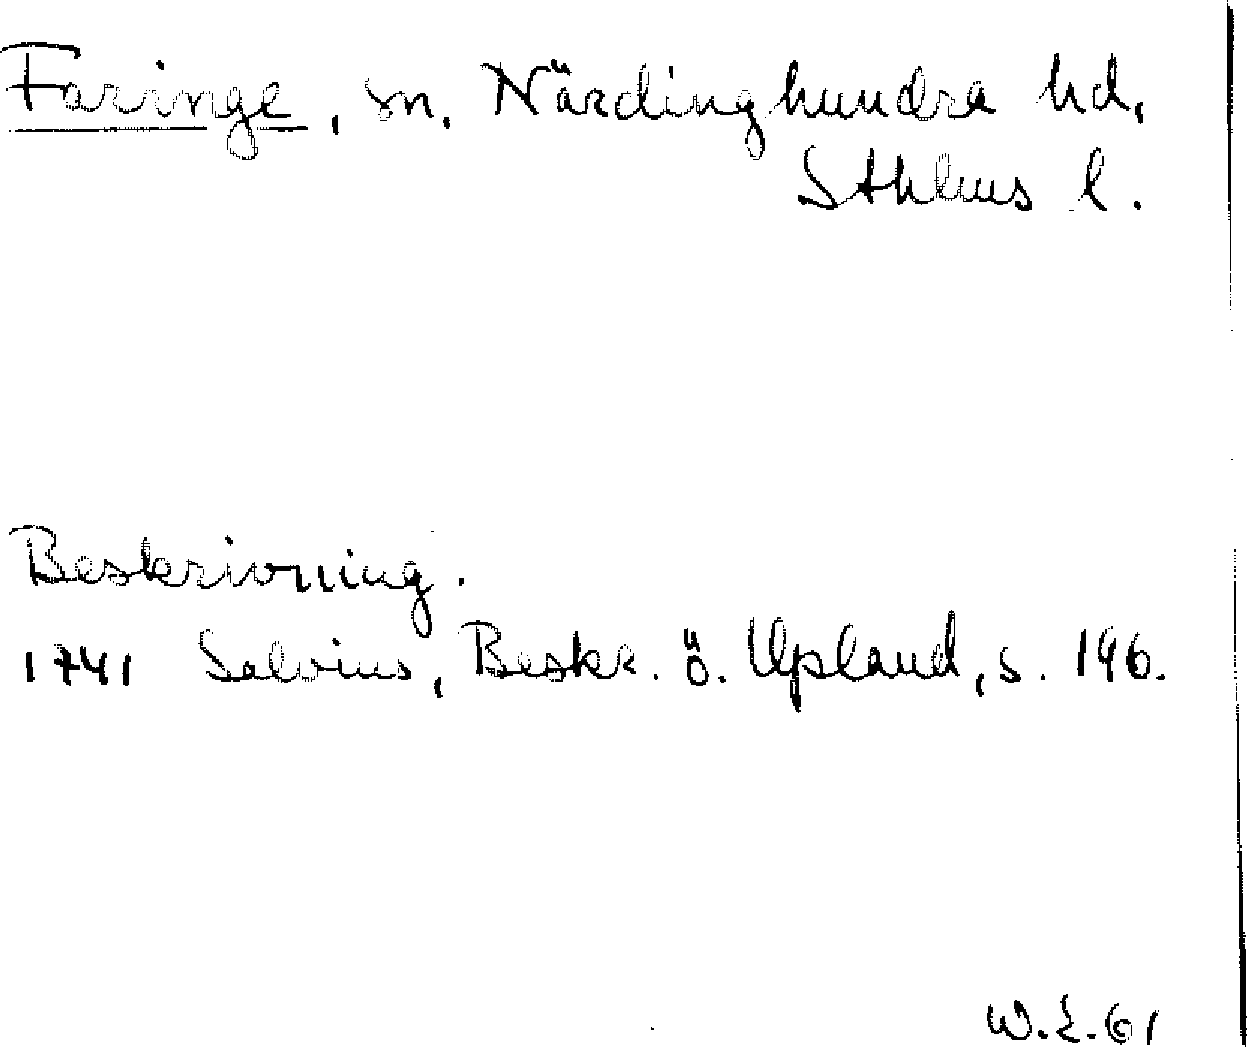 Faringe, sn, Närdinghundra hd,
Sthlms l.
Beskrivning.
1741 Salvius, Beskr. ö. Upland, s. 196.
W.L.61